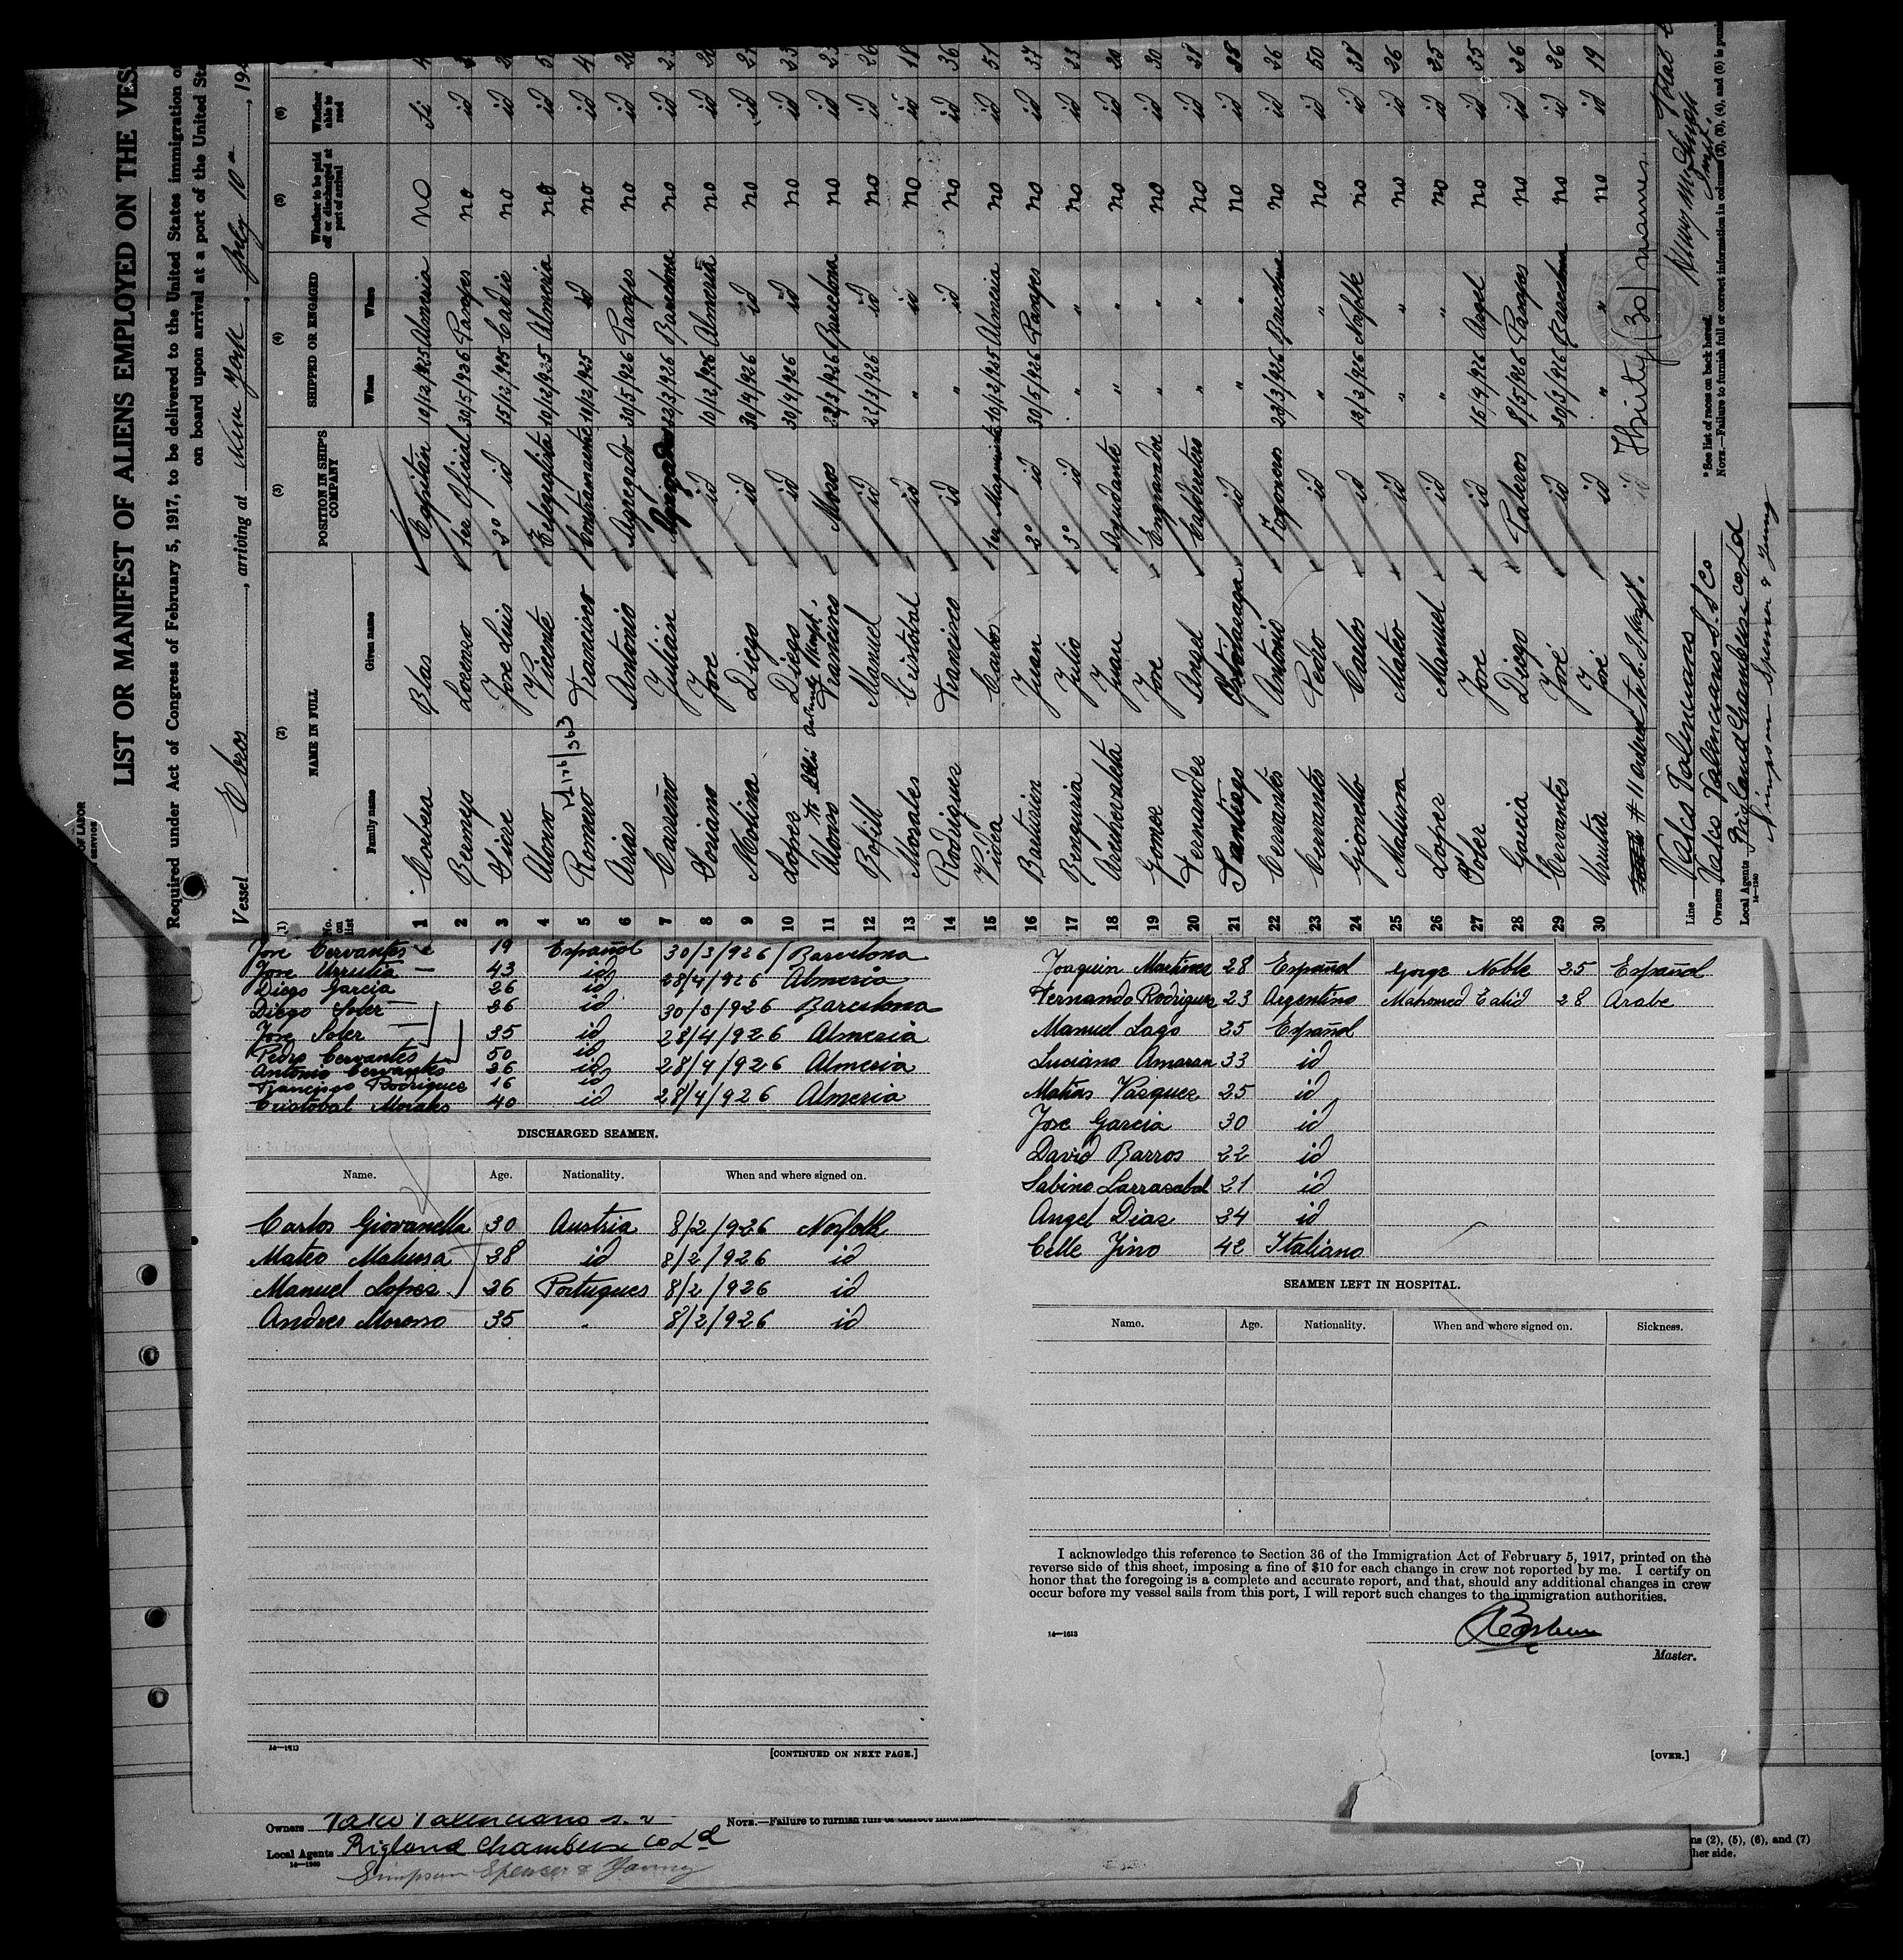 LIST OR MANIFEST OF ALIENS EMPLOYED ON THE VES
Required under Act of Congress of February 5, 1917, to be delivered to the United States immigration
on board upon arrival at a port of the United
Vessel Ebros, arriving at New York, July 10, 19
(1) (2) (3) (4) (5) (6)
No. on list NAME IN FULL POSITION IN SHIP'S COMPANY SHIPPED OR ENGAGED Whether to be paid off or discharged at port of arrival Whether able to read
Family name Given name When Where
1 Corbera Blas Capitán 10/12/925 Almeria no Si
2 Lorenzo 1er Oficial 30/5/926 no id
3 Jose Luis 2° id 15/12/925 Cadiz no id
4 Alonso Vicente 10/12/925 Almeria no id
5 Romero Francisco Contramaestre 10/12/925 id no id
6 Arias Antonio Agregado 30/5/926 no id
7 Carreño Julian 22/3/926 Barcelona no id
8 Soriano Jose id 10/12/926 Almeria no id
9 Molina Diego id 30/4/926 id no id
10 Lopez Diego id 30/4/926 id no id
11 Alonso Francisco Mozo 22/3/926 Barcelona no id
12 Bofill Manuel id 22/3/926 id no id 26
13 Morales Cristobal id " id no id 18
14 Rodriguez Francisco id " id no id 36
15 Videa Carlos 1er Maquinista 10/12/925 Almeria no id 51
16 Juan 2° id 30/5/926 no id 37
17 Benguria Julio 3° id " " no id 33
18 Juan Ayudante " " no id 20
19 Gomez Jose Engrasador " " no id 30
20 Fernandez Angel Calderetero " " no id 28
21 Santiago id " " no id 38
22 Cervantes Antonio Fogonero 22/3/926 Barcelona no id 26
23 Cervantes Pedro id " " no id 50
24 Carlos id 13/3/926 no id 38
25 Matura Mateo id " " no id 26
26 Lopez Manuel id " " no id 25
27 Soler Jose id 16/4/926 no id 35
28 Garcia Diego Paleros 8/5/926 no id 26
29 Cervantes José id 30/3/926 Barcelona no id 26
30 Urrutia José id " " no id 19
Thirty (30) names
Line Vasco Valenciano
Owners Vasco Valenciano S.S Co
Local Agents Rigland Chambers Co Ld
Simpson Spence & Young
14—1240
*See list of races on back hereof.
NOTE.—Failure to furnish full or correct information in columns (2), (3), (4), and (5) is
Jose Cervantes 19 Español 30/3/926 Barcelona
Jose Urrutia 43 id 28/4/926 Almeria
Diego Garcia 26 id
Diego Soler 26 id 30/3/926 Barcelona
Jose Soler 35 id 28/4/926 Almeria
Pedro Cervantes 50 id
Antonio Cervantes 26 id 28/4/926 Almeria
Francisco Rodriguez 16 id
Cristobal Morales 40 id 28/4/926 Almeria
DISCHARGED SEAMEN.
Name. Age. Nationality. When and where signed on.
Carlos Giovanella 30 Austria 8/2/926 Norfolk
Mateo Matussa 38 id 8/2/926 id
Manuel Lopez 26 Portugues 8/2/926 id
Andres Moroso 35 " 8/2/926 id
14—1613
[CONTINUED ON NEXT PAGE.]
Joaquin Martinez 28 Español Gorge Noble 25 Español
Fernando Rodriguez 23 Argentino Mahomed Ealid 28 Arabe
Manuel Lago 25 Español
Luciano Amaran 33 id
Matias Vasquez 25 id
Jose Garcia 30 id
David Barros 22 id
Sabino Larrazabal 21 id
Angel Dias 34 id
Celle Jino 42 Italiano
SEAMEN LEFT IN HOSPITAL.
Name. Age. Nationality. When and where signed on. Sickness.
I acknowledge this reference to Section 36 of the Immigration Act of February 5, 1917, printed on the
reverse side of this sheet, imposing a fine of $10 for each change in crew not reported by me. I certify on
honor that the foregoing is a complete and accurate report, and that, should any additional changes in crew
occur before my vessel sails from this port, I will report such changes to the immigration authorities.
14—1613
Master.
[OVER.]
Owners
NOTE.—Failure to furnish full or correct
Local Agents Rigland Chambers Co Ld
14—1240
Simpson Spence & Young
ns (2), (5), (6), and (7)
her side.